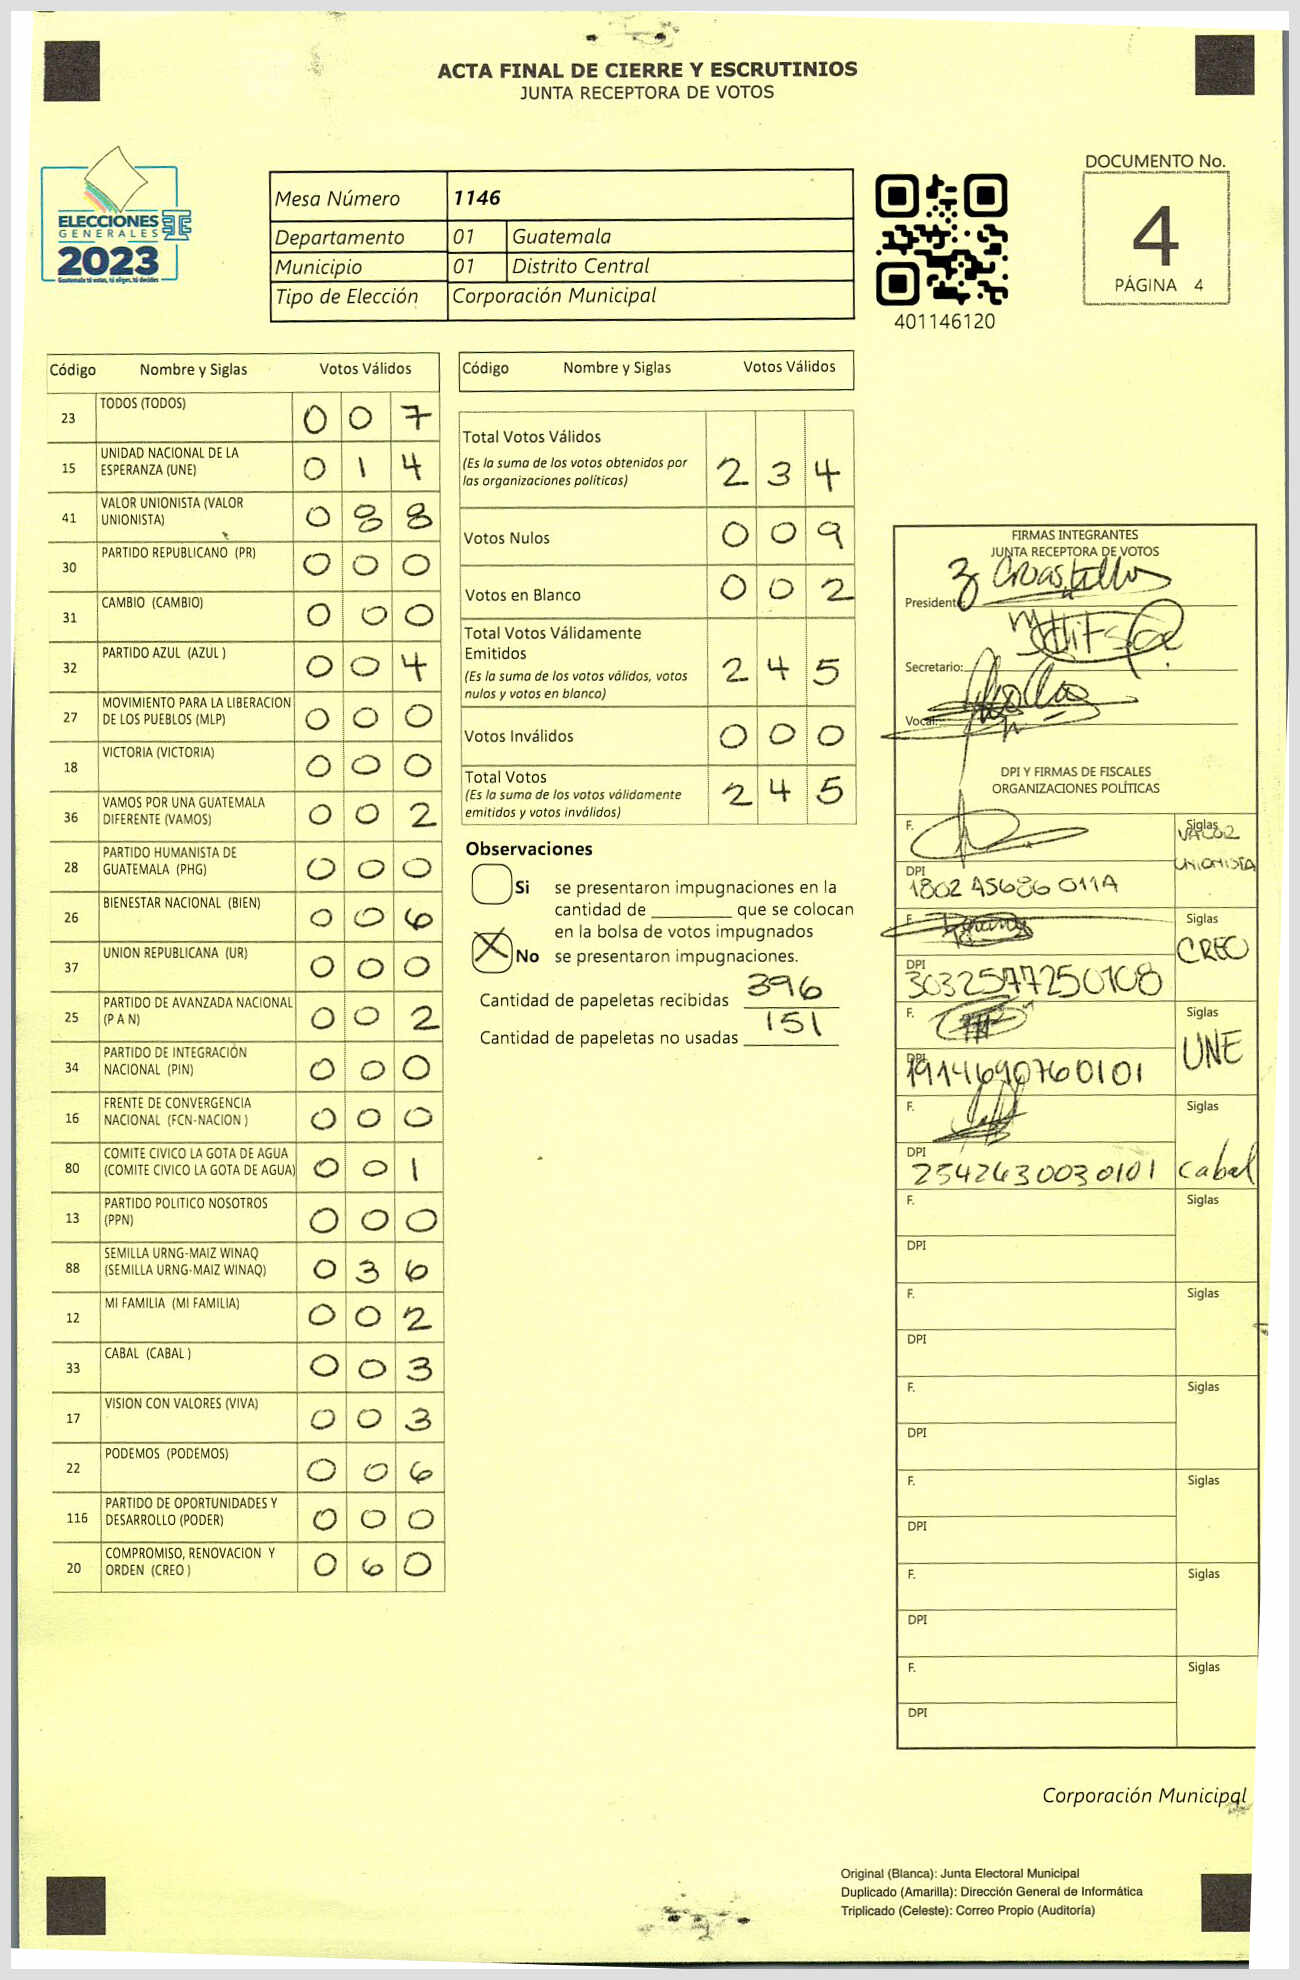 ACTA FINAL DE CIERRE Y ESCRUTINIOS
JUNTA RECEPTORA DE VOTOS
ELECCIONES
GENERALES
2023
Guatemala tú votas, tú eliges, tú decides
Mesa Número 1146
Departamento 01 Guatemala
Municipio 01 Distrito Central
Tipo de Elección Corporación Municipal
401146120
DOCUMENTO No.
4
PÁGINA 4
Código Nombre y Siglas Votos Válidos
23 TODOS (TODOS) 0 0 7
15 UNIDAD NACIONAL DE LA
ESPERANZA (UNE) 0 1 4
41 VALOR UNIONISTA (VALOR
UNIONISTA) 0 8 8
30 PARTIDO REPUBLICANO (PR) 0 0 0
31 CAMBIO (CAMBIO) 0 0 0
32 PARTIDO AZUL (AZUL ) 0 0 4
27 MOVIMIENTO PARA LA LIBERACION
DE LOS PUEBLOS (MLP) 0 0 0
18 VICTORIA (VICTORIA) 0 0 0
36 VAMOS POR UNA GUATEMALA
DIFERENTE (VAMOS) 0 0 2
28 PARTIDO HUMANISTA DE
GUATEMALA (PHG) 0 0 0
26 BIENESTAR NACIONAL (BIEN) 0 0 6
37 UNION REPUBLICANA (UR) 0 0 0
25 PARTIDO DE AVANZADA NACIONAL
(P A N) 0 0 2
34 PARTIDO DE INTEGRACIÓN
NACIONAL (PIN) 0 0 0
16 FRENTE DE CONVERGENCIA
NACIONAL (FCN-NACION ) 0 0 0
80 COMITE CIVICO LA GOTA DE AGUA
(COMITE CIVICO LA GOTA DE AGUA) 0 0 1
13 PARTIDO POLITICO NOSOTROS
(PPN) 0 0 0
88 SEMILLA URNG-MAIZ WINAQ
(SEMILLA URNG-MAIZ WINAQ) 0 3 6
12 MI FAMILIA (MI FAMILIA) 0 0 2
33 CABAL (CABAL ) 0 0 3
17 VISION CON VALORES (VIVA) 0 0 3
22 PODEMOS (PODEMOS) 0 0 6
116 PARTIDO DE OPORTUNIDADES Y
DESARROLLO (PODER) 0 0 0
20 COMPROMISO, RENOVACION Y
ORDEN (CREO ) 0 6 0
Código Nombre y Siglas Votos Válidos
Total Votos Válidos
(Es la suma de los votos obtenidos por
las organizaciones políticas) 2 3 4
Votos Nulos 0 0 9
Votos en Blanco 0 0 2
Total Votos Válidamente
Emitidos
(Es la suma de los votos válidos, votos
nulos y votos en blanco) 2 4 5
Votos Inválidos 0 0 0
Total Votos
(Es la suma de los votos válidamente
emitidos y votos inválidos) 2 4 5
Observaciones
Si se presentaron impugnaciones en la
cantidad de ________ que se colocan
en la bolsa de votos impugnados
X No se presentaron impugnaciones.
Cantidad de papeletas recibidas 396
Cantidad de papeletas no usadas 151
FIRMAS INTEGRANTES
JUNTA RECEPTORA DE VOTOS
Presidente:
Secretario:
Vocal:
DPI Y FIRMAS DE FISCALES
ORGANIZACIONES POLÍTICAS
F. Siglas
VALOR
UNIONISTA
DPI
F. Siglas
CREO
DPI 3032577250108
F. Siglas
UNE
DPI 1914690760101
F. Siglas
DPI 2542630030101 Cabal
F. Siglas
DPI
F. Siglas
DPI
F. Siglas
DPI
F. Siglas
DPI
F. Siglas
DPI
F. Siglas
DPI
Corporación Municipal
Original (Blanca): Junta Electoral Municipal
Duplicado (Amarilla): Dirección General de Informática
Triplicado (Celeste): Correo Propio (Auditoría)